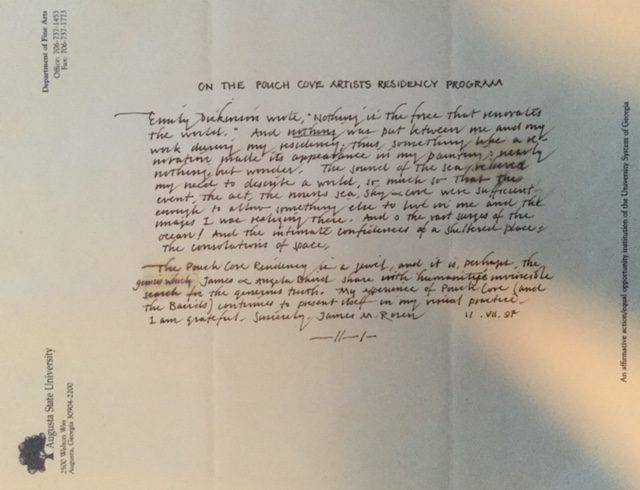 Department of Fine Arts
Office: 706-737-1453
Fax: 706-737-1773
ON THE POUCH COVE ARTISTS RESIDENCY PROGRAM
Emily Dickinson wrote, "Nothing is the force that renovates
the world." And nothing was put between me and my
work during my residency; thus, something like a re-
novation made its appearance in my painting: nearly
nothing but wonder. The sound of the sea relieved
my need to describe a world, so much so that the
event, the act, the nouns sea, sky & cove were sufficient
enough to allow something else to live in me and the
images I was realizing there. And O the vast surges of the
ocean! And the intimate confidences of a sheltered place;
the consolations of space.
The Pouch Cove Residency is a jewel, and it is, perhaps, the
genius which James & Angela Baird share with humanities invincible
search for the generous truth. My experience of Pouch Cove (and
the Bairds) continues to present itself in my visual practice.
I am grateful. Sincerely, James M. Rosen 11 . VII. 97
Augusta State University
2500 Walton Way
Augusta, Georgia 30904-2200
An affirmative action/equal opportunity institution of the University System of Georgia